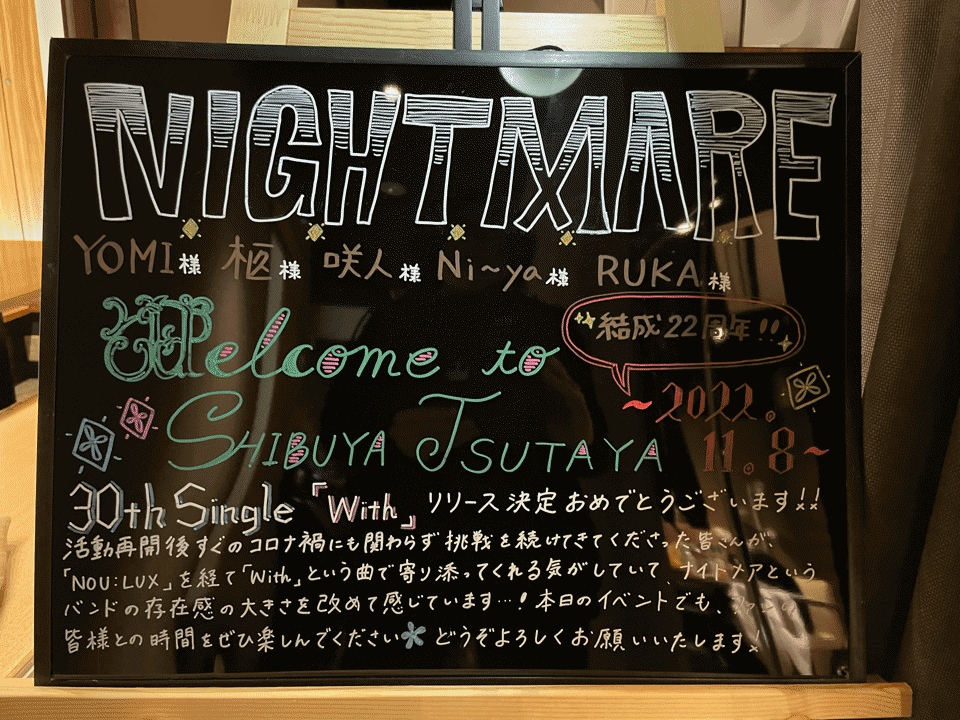 NIGHTMARE
YOMI様 柩様 咲人様 Ni~ya様 RUKA様
結成22周年!!
Welcome to
~2022.
SHIBUYA TSUTAYA
11.8~
30th Single「With」リリース決定おめでとうございます!!
活動再開後すぐのコロナ禍にも関わらず挑戦を続けてきてくださった皆さんが、
「NOU:LUX」を経て「With」という曲で寄り添ってくれる気がしていて、ナイトメアという
バンドの存在感の大きさを改めて感じています…!本日のイベントでも、ファンの
皆様との時間をぜひ楽しんでください どうぞよろしくお願いいたします!